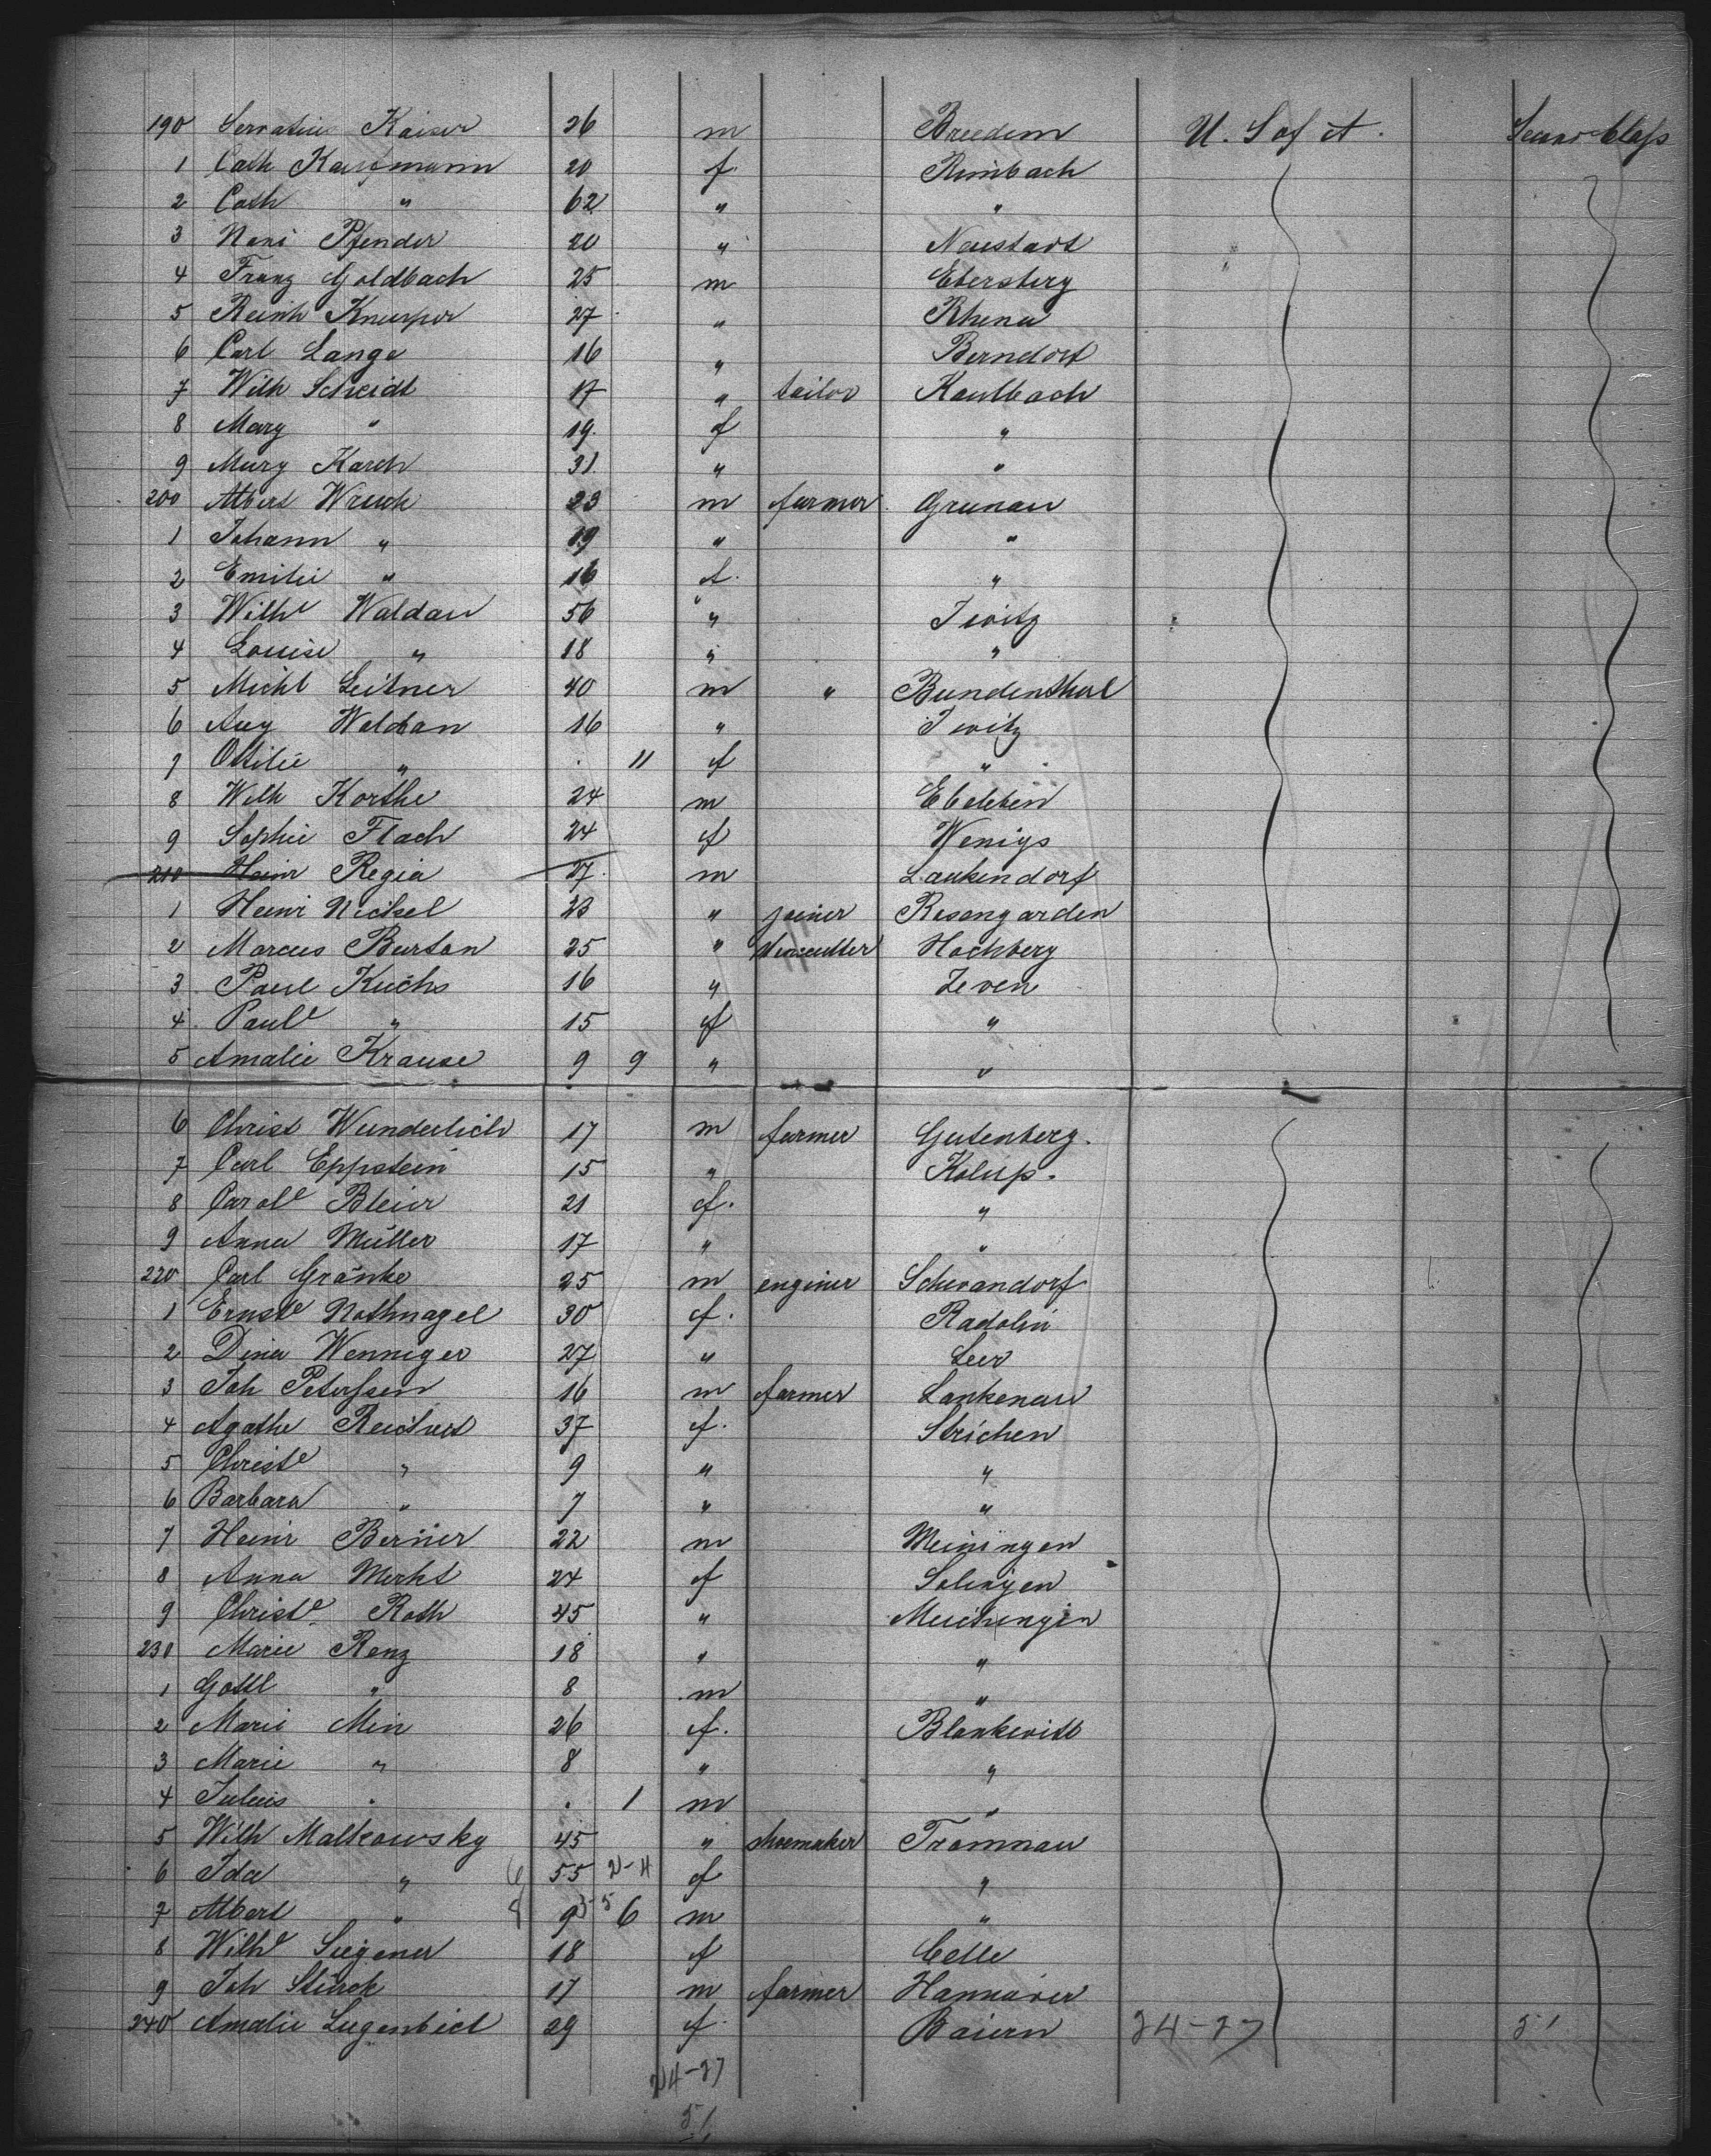 190 Servatius Kaiser 26 m Breedem U. S of A. Second Class
1 Cath Kauffmann 20 f. Rimbach
2 Cath " 62 " "
3 Nani Pfender 20 " Neustadt
4 Franz Goldbach 25 m Ebersberg
5 Reinh 27 " Rhena
6 Carl Lange 16 " Berndorf
7 Wilh Scheidt 17 " tailor Kaulbach
8 Marg " 19. f "
9 Marg Karch 31. " "
200 Albert Wruck 23 m farmer Grunau
1 Johann " 19 " "
2 Emilie " 16 f. "
3 Wilhe Waldau 56 " Iwitz
4 Louise " 18 " "
5 Michl Leitner 40 m " Bundenthal
6 Aug Waldau 16 " Iwitz
7 Ottilie " . 11 f "
8 Wilh Korthe 24 m Ebeleben
9 Sophie Flach 24 f Wenigs
210 Heinr Regia 27. m Lankendorf
1 Heinr Nickel 23 " joiner Rosengarden
2 Marcus Burton 25 " Hochberg
3 Paul Kuchs 16 " Zeven
4 Paule " 15 f "
5 Amalie Krause 9 9 " "
6 Christ Wunderlich 17 m farmer Gutenberg.
7 Carl Eppstein 15 " Kolup.
8 Carole Bleier 21 f. "
9 Anna Müller 17 " "
220 Carl Gränke 25 m enginer Schwandorf
1 Ernste Nothnagel 30 f. Radolin
2 Dina Wenniger 27 " Leer
3 Joh Peterssen 16 m farmer Lankenau
4 Agathe Reichert 37 f. Strichen
5 Christe " 9 " "
6 Barbara " 7 " "
7 Heinr Berner 22 m Meiningen
8 Anna Merkt 24 f Solingen
9 Christe Roth 45 " Meichingen
230 Marie Renz 18 " "
1 Gottl " 8 m "
2 Marie Min 26 f. Blankwitt
3 Marie " 8 " "
4 Julius " . 1 m "
5 Wilh Malkowsky 45 " shoemaker Tromnau
6 Ida " 55 2-11 f "
7 Albert " 9 6 m "
8 Wilhe Siegener 18 f Celle
9 Joh Stürck 17 m farmer Hannover
240 Amalie Lugenbiel 29 f. Baiern 24-27 51
24-27
51